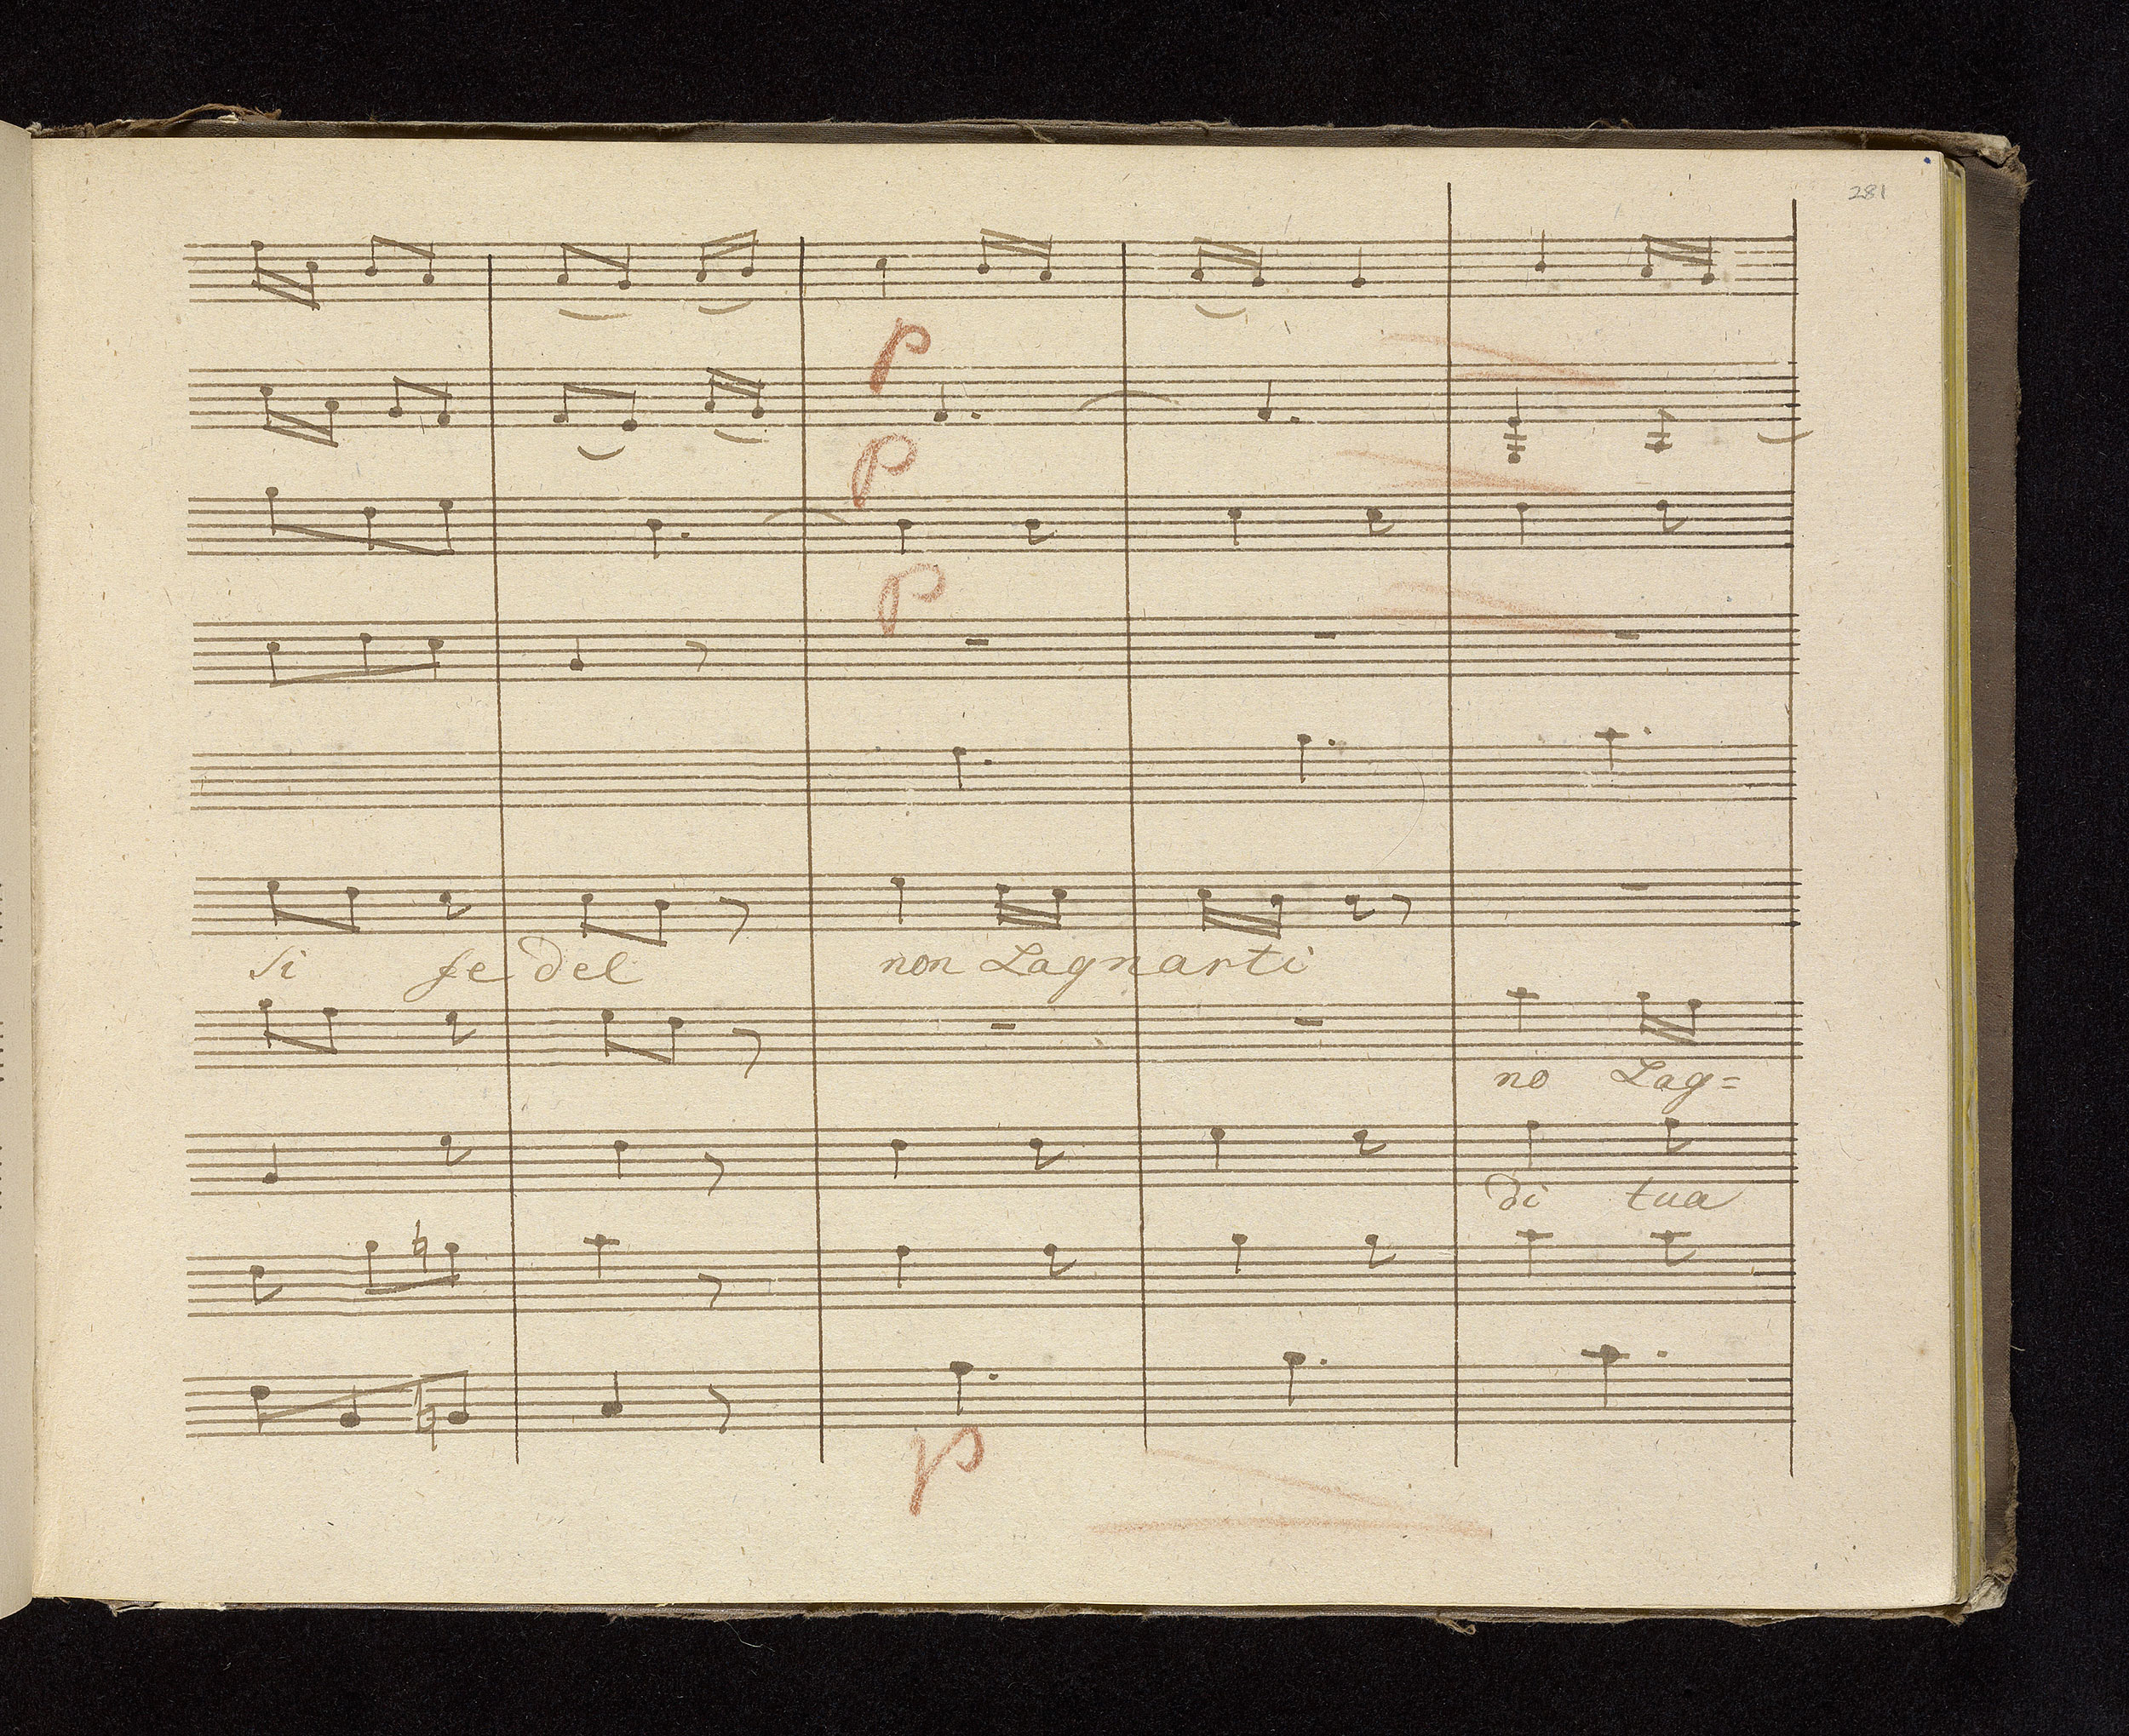 281
p
p
p
si fe del non Lagnarti
no Lag=
di tua
p